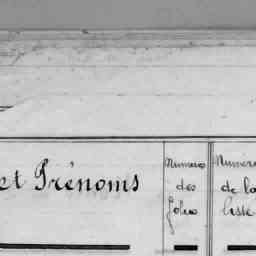 et Prénoms
Numéros
des
folios
Numéros
de la
liste